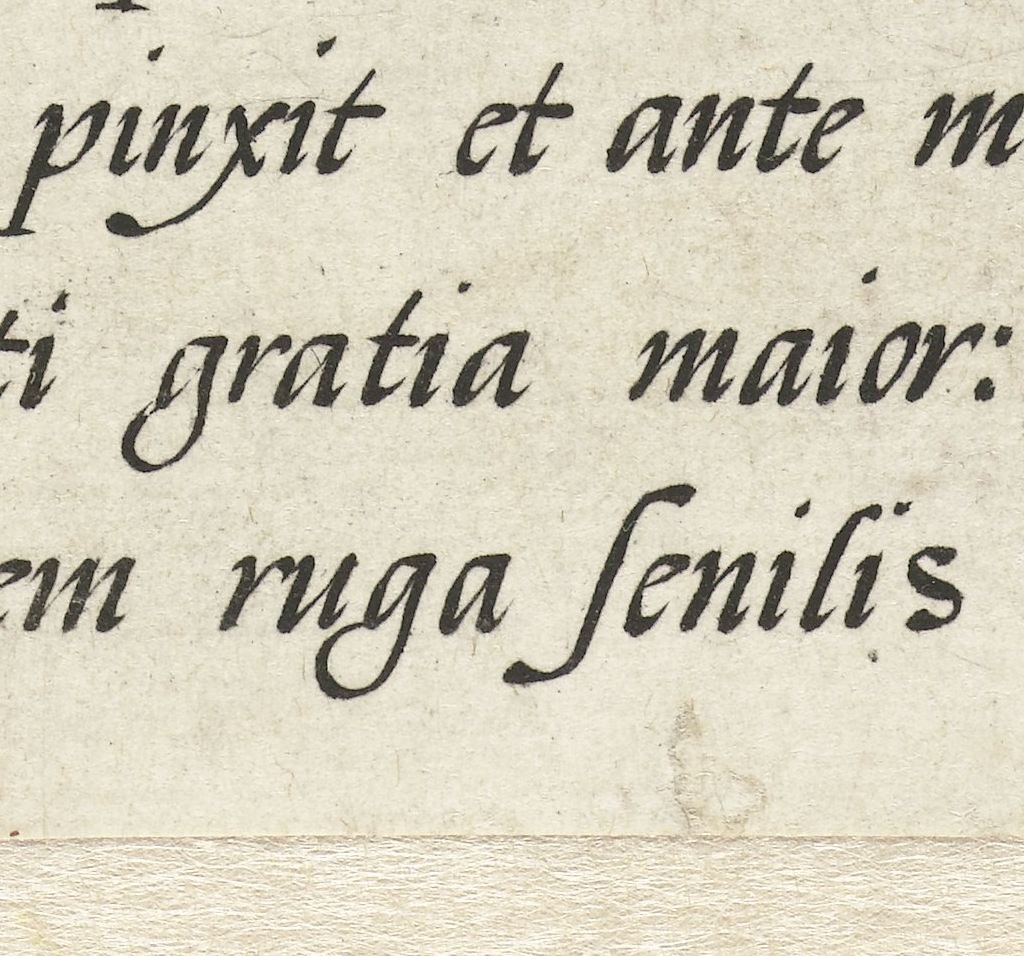 pinxit et ante m
ti gratia maior:
em ruga ſenilis